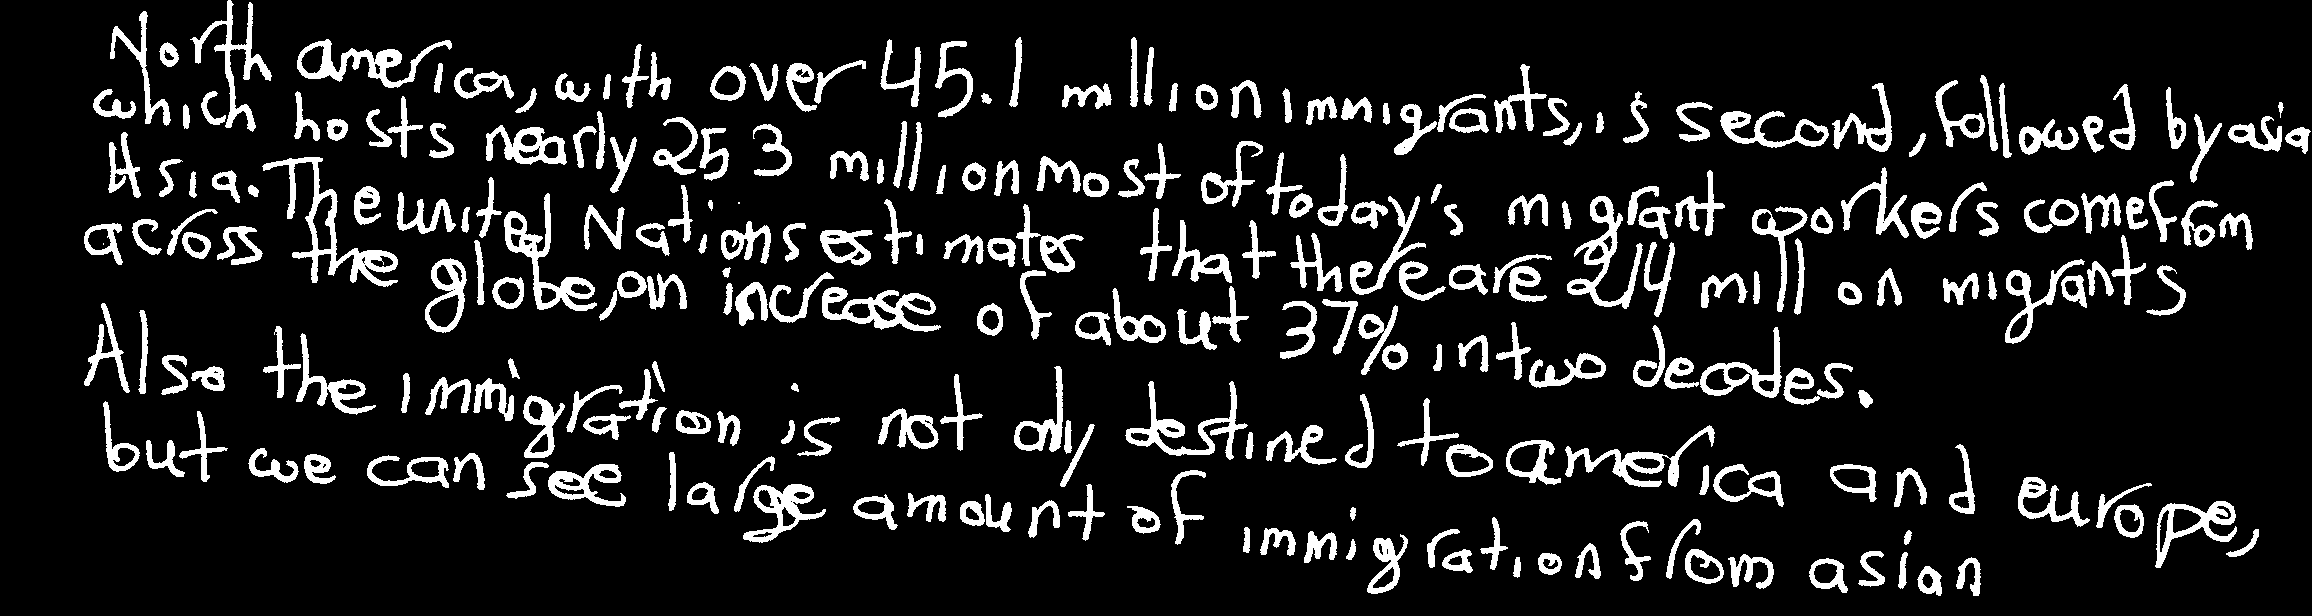 North america, with over 45.1 million immigrants, is second, followed by asia
which hosts nearly 25 3 million most of today's migrant workers come from
Asia. The united Nations estimates that there are 214 mill on migrants
across the globe, an increase of about 37% in two decades.
Also the immigration is not only destined to america and europe,
but we can see large amount of immigration from asian